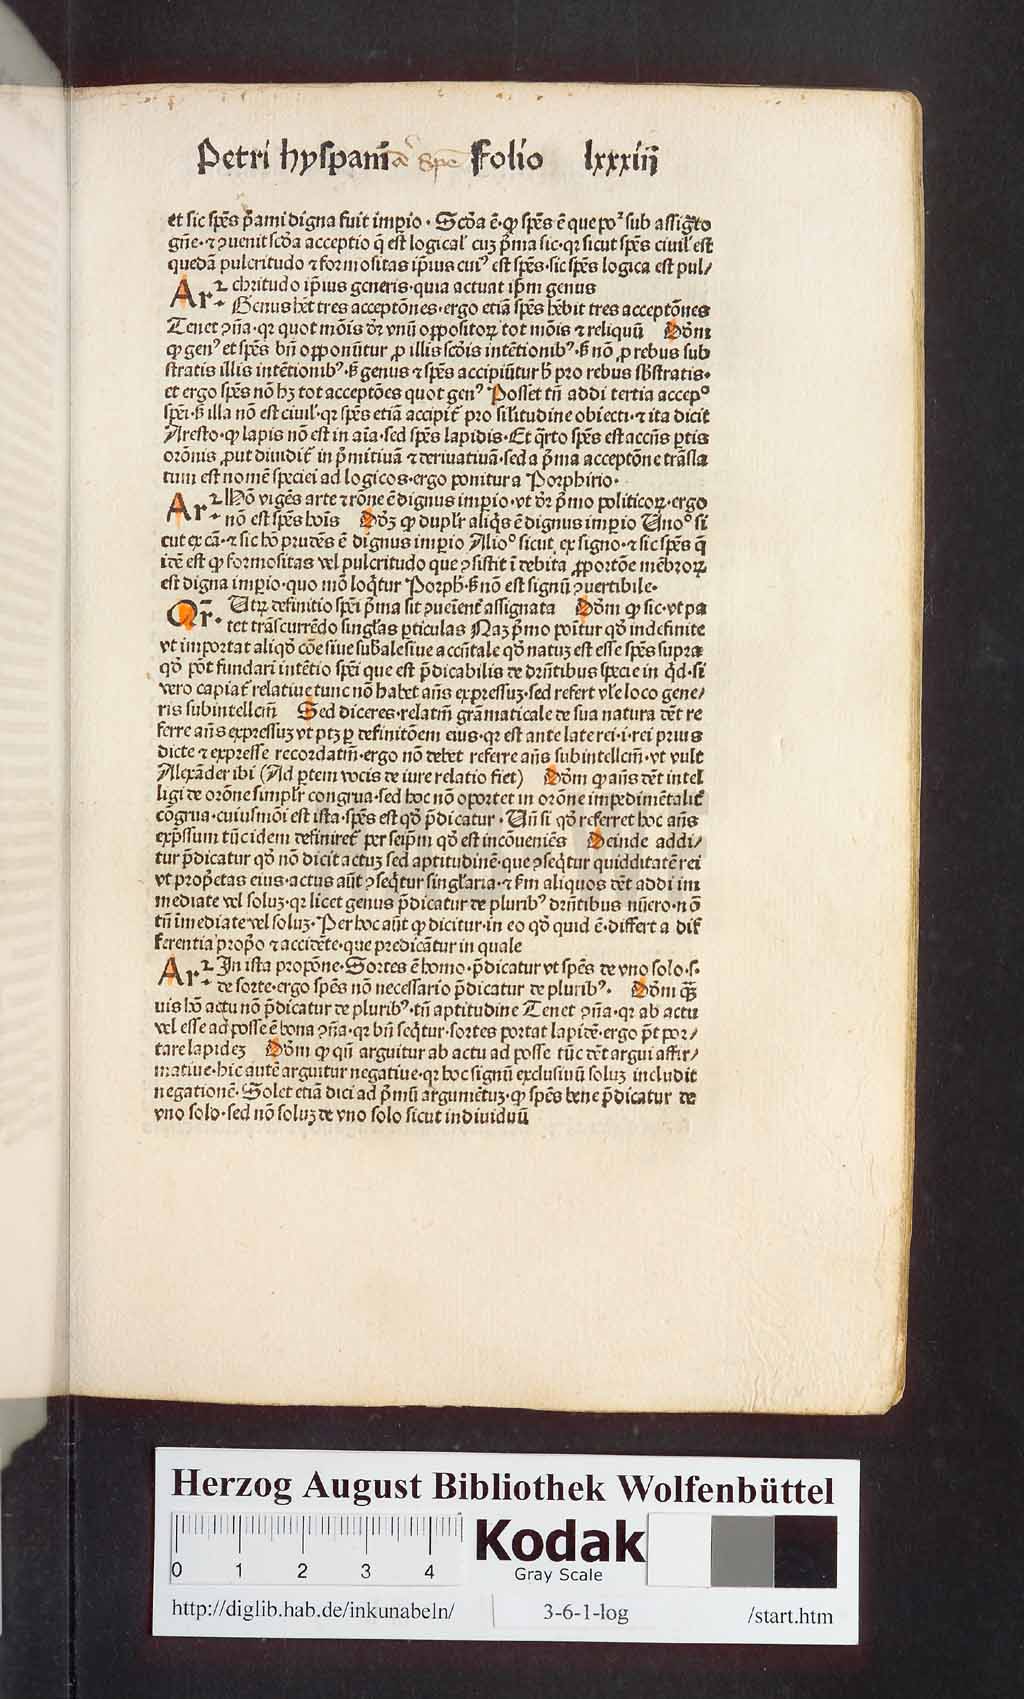 Petri hyspani Folio lxxxiij
et sic spēs p̄ami digna fuit imꝑio · Scd̄a ē · ꝙ spēs ē que poꝰ sub assigͣto
gn̄e · ⁊ ꝯuenit scd̄a acceptio q̄ est logical' cuꝫ p̄ma sic · qꝛ sicut spēs ciuil' est
quedā pulcritudo ⁊ formositas ip̄ius cuiꝰ est spēs · sic spēs logica est pul⸗
chritudo ip̄ius generis · quia actuat ip̄m genus
Ar2· Genus hēt tres acceptōnes · ergo etiā spēs hēbit tres acceptōnes
Tenet ꝯn̄a · qꝛ quot mōis dr̄ vnū oppositoꝝ tot mōis ⁊ reliquū Dd̄m
ꝙ genꝰ et spēs bn̄ opponūtur ꝓ illis scd̄is intētionibꝰ · sꝫ nō ꝓ rebus sub
stratis illis intētionibꝰ · sꝫ genus ⁊ spēs accipiūtur hͦ pro rebus sb̄stratis ·
et ergo spēs nō hꝫ tot acceptōes quot genꝰ Posset tn̄ addi tertia accepᵒ
spēi · sꝫ illa nō est ciuil' · qꝛ spēs etiā accipit̄ pro sil'itudine obiecti · ⁊ ita dicit
Aresto · ꝙ lapis nō est in aīa · sed spēs lapidis · Et q̄rto spēs est accn̄s ꝑtis
orōnis ꝓut diuidit̄ in p̄mitiuā ⁊ deriuatiuā · sed a p̄ma acceptōne trāsla
tum est nomē speciei ad logicos · ergo ponitur a Porphirio ·
Ar2· Hō vigēs arte ⁊ rōne ē dignus imꝑio · vt dr̄ p̄mo politicoꝝ · ergo
nō est spēs hoīs Dd̄ꝫ ꝙ dupl'r aliq̄s ē dignus imꝑio Vnoᵒ si
cut ex cā · ⁊ sic hō prudēs ē dignus imꝑio Alioᵒ sicut ex signo · ⁊ sic spēs q̄
idē est ꝙ formositas vel pulcritudo que ꝯsistit ī debita ꝓportōe mēbroꝝ
est digna imꝑio · quo mō loq̄tur Porph̄ · sꝫ nō est signū ꝯuertibile ·
Qr̄· Utꝝ definitio spēi p̄ma sit ꝯueniēt̄ assignata Dd̄m ꝙ sic · vt pa
tet trāscurrēdo singl'as ꝑticulas Naꝫ p̄mo ponit̄ur qd̄ indefinite
vt importat aliqd̄ cōe siue sub̄ale siue accn̄tale qd̄ natuꝫ est esse spēs supra
qd̄ pōt fundari intētio spēi que est p̄dicabilis de drn̄tibus specie in q̄d · si
vero capiat̄ relatiue tunc nō habet an̄s expressuꝫ · sed refert vl'e loco gene⸗
ris subintellcm̄ Sed diceres · relatiū grāmaticale de sua natura dēt re
ferre an̄s expressuꝫ vt ptꝫ ꝑ definitōem eius · qꝛ est ante late rei · i · rei prius
dicte ⁊ expresse recordatiū · ergo nō debet referre an̄s subintellcm̄ · vt vult
Alexāder ibi (Ad ꝑtem vocis de iure relatio fiet) Dd̄m ꝙ an̄s dēt intel
ligi de orōne simpl'r congrua · sed hoc nō oportet in orōne impedimētalit̄
cōgrua · cuiusmōi est ista · spēs est qd̄ p̄dicatur · Vn̄ si qd̄ referret hoc an̄s
exp̄ssum tūc idem definiret̄ per seip̄m qd̄ est incōueniēs Deinde addi⸗
tur p̄dicatur qd̄ nō dicit actuꝫ sed aptitudinē · que ꝯseq̄tur quidditatē rei
vt prop̄etas eius · actus aūt ꝯseq̄tur singl'aria · ⁊ fm̄ aliquos dēt addi im
mediate vel soluꝫ · qꝛ licet genus p̄dicatur de pluribꝰ drn̄tibus nūero · nō
tn̄ īmediate vel soluꝫ · Per hoc aūt ꝙ dicitur · in eo qd̄ quid ē · differt a dif
ferentia prop̄o ⁊ accidēte · que predicātur in quale
Ar2· In ista propōne · Sortes ē homo · p̄dicatur vt spēs de vno solo · s ·
de sorte · ergo spēs nō necessario p̄dicatur de pluribꝰ · Dd̄m qͣꝫ
uis hō actu nō p̄dicatur de pluribꝰ · tn̄ aptitudine Tenet ꝯn̄a · qꝛ ab actu
vel esse ad posse ē bona ꝯn̄a · qꝛ bn̄ seq̄tur · sortes portat lapidē · ergo pōt por⸗
tare lapidez Dd̄m ꝙ qn̄ arguitur ab actu ad posse tūc dēt argui affir⸗
matiue · hic autē arguitur negatiue · qꝛ hoc signū exclusiuū soluꝫ includit
negationē · Solet etiā dici ad p̄mū argumētuꝫ · ꝙ spēs bene p̄dicatur de
vno solo · sed nō soluꝫ de vno solo sicut indiuiduū
Herzog August Bibliothek Wolfenbüttel
0 1 2 3 4
Kodak
Gray Scale
http://diglib.hab.de/inkunabeln/ 3-6-1-log /start.htm